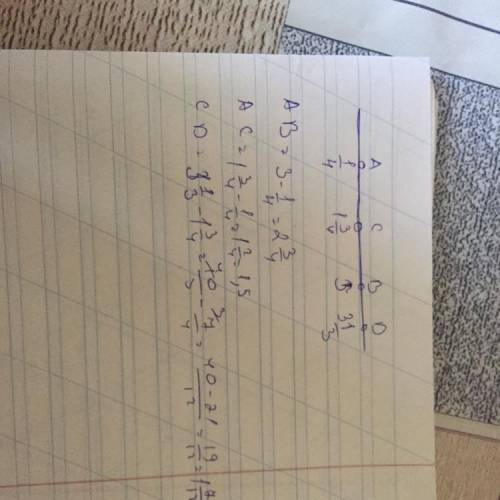 A C B D
1/4 1 3/4 3 3 1/3
AB = 3 - 1/4 = 2 3/4
AC = 1 3/4 - 1/4 = 1 2/4 = 1,5
CD = 3 1/3 - 1 3/4 = 10/3 - 7/4 = 40-21/12 = 19/12 = 1 7/12